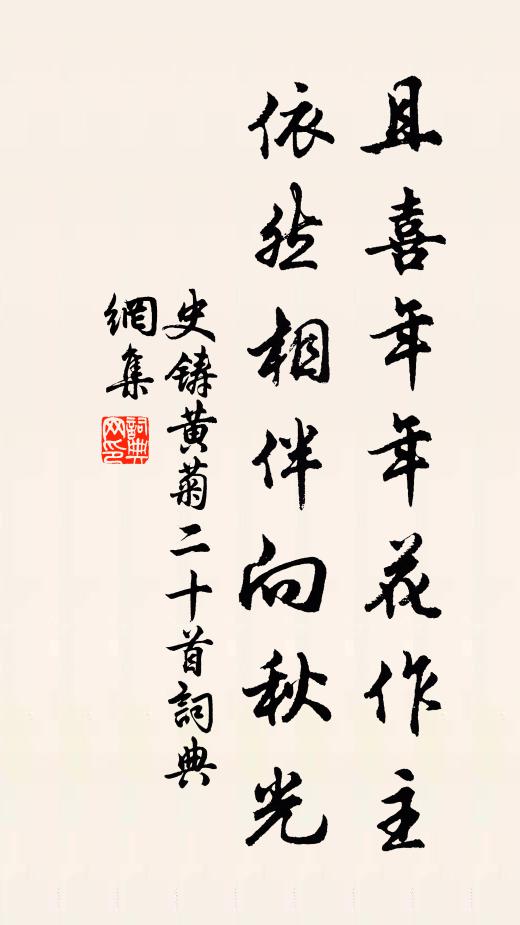 且喜年年花作主
依然相伴向秋光
史鑄黃菊二十首詞典
網集
詞典
网印